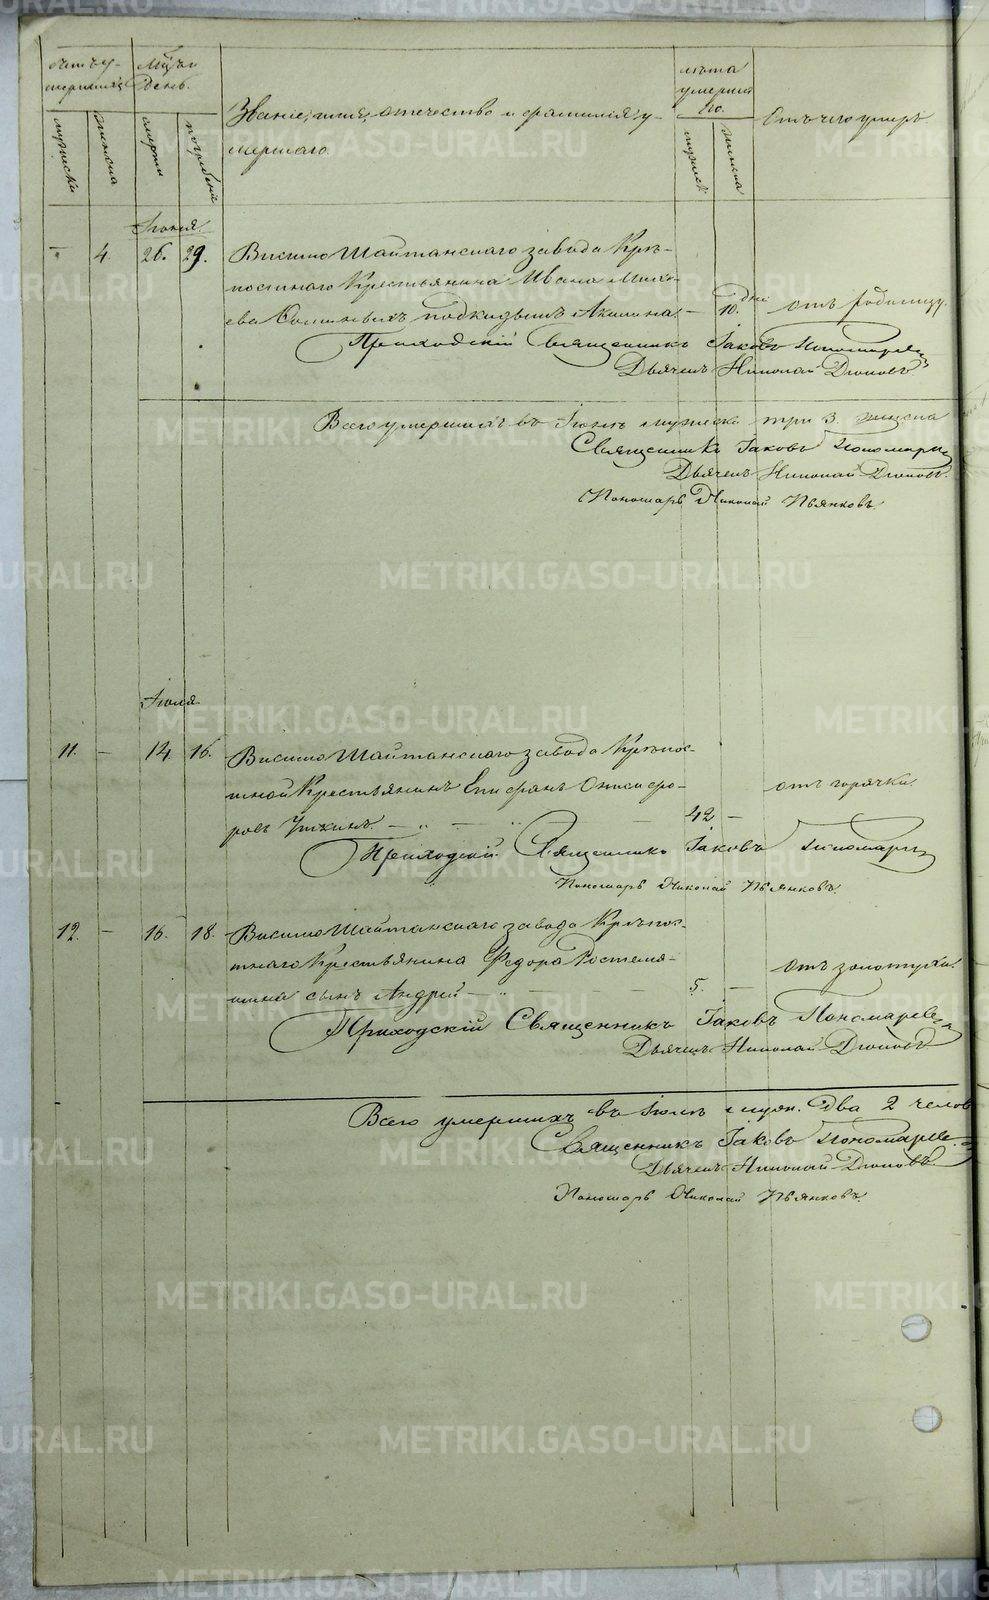 Счетъ у-
мершихъ
Мѣс. и
день.
мужеска
женска
смерти
погребенія
Званіе, имя, отчество и фамилія у-
мершаго.
лѣта
умершаго.
мужеск.
женска
Отъ чего умеръ.
Іюня.
– 4. 26. 29. Висимо Шайтанскаго завода Крѣ-
постнаго Крестьянина Ивана
подкидышъ Акилина. – 10. дней отъ родимцу.
Приходскій Священникъ Іаковъ Пономаревъ
Дьячекъ Николай Діоновъ
Всего умершихъ въ Іюнѣ мужеска три 3. женска
Священникъ Іаковъ Пономаревъ
Дьячекъ Николай Діоновъ.
Пономарь Николай Пьянковъ.
Іюля
11. – 14. 16. Висимо Шайтанскаго завода Крѣпос-
тной Крестьянинъ Епифанъ Онисифо-
ровъ 42 – отъ горячки.
Приходскій Священникъ Іаковъ Пономаревъ
Пономарь Николай Пьянковъ.
12. – 16. 18. Висимо Шайтанскаго завода Крѣпос-
тнаго Крестьянина Федора
сынъ Андрей 5. – отъ золотухи.
Приходскій Священникъ Іаковъ Пономаревъ
Дьячекъ Николай Діоновъ
Всего умершихъ въ Іюлѣ муж. два 2 челов.
Священникъ Іаковъ Пономаревъ
Дьячекъ Николай Діоновъ
Пономарь Николай Пьянковъ.
METRIKI.GASO-URAL.RU